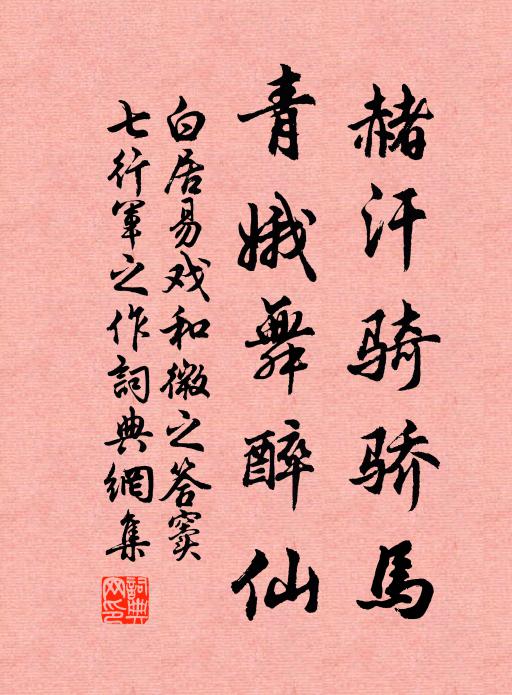 赭汗骑骄馬
青娥舞醉仙
白居易戏和微之答窦
七行軍之作詞典網集
詞典網印